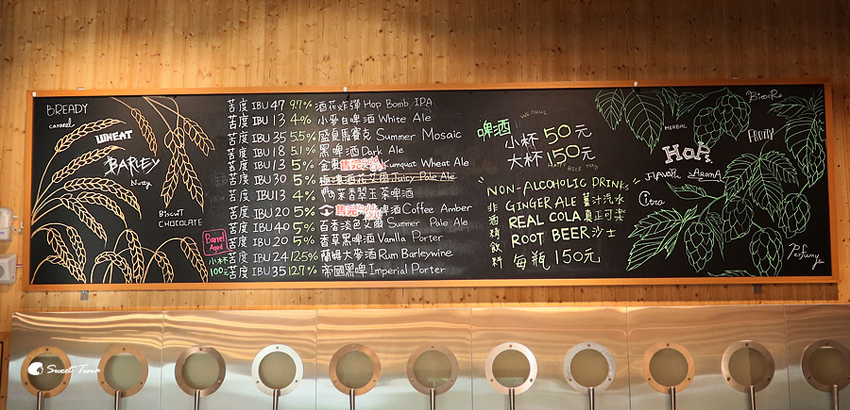 BREADY
caramel
WHEAT
BARLEY
Nutty
BISCUIT
CHOCOLATE
苦度 IBU 47 9.7% 酒花炸彈 Hop Bomb IPA
苦度 IBU 13 4% 小麥白啤酒 White Ale
苦度 IBU 35 5.5% 盛夏馬賽克 Summer Mosaic
苦度 IBU 18 5.1% 黑啤酒 Dark Ale
苦度 IBU 13 5% 金棗 Kumquat Wheat Ale
苦度 IBU 30 5% 酒花艾爾 Juicy Pale Ale
苦度 IBU 13 4% 阿茉香翠玉茶啤酒
苦度 IBU 20 5% 啤酒 Coffee Amber
苦度 IBU 40 5% 百香淡色艾爾 Summer Pale Ale
苦度 IBU 20 5% 香草黑啤酒 Vanilla Porter
Barrel Aged
小杯 100元
苦度 IBU 24 12.5% 蘭姆大麥酒 Rum Barleywine
苦度 IBU 35 12.7% 帝國黑啤 Imperial Porter
啤酒
小杯 50元
大杯 150元
"NON-ALCOHOLIC DRINKS"
非酒精飲料
GINGER ALE 薑汁汽水
REAL COLA 真正可樂
ROOT BEER 沙士
每瓶 150元
HERBAL
Bitter
FRUITY
HoP
FLAVOR
AROMA
Citra
Sweet Tina